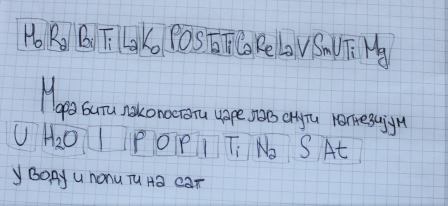 Mo Ra Bi Ti La Ko POS Ta Ti Ca Re La V Sm U Ti Mg
Мора бити лако постати царе лав снути магнезијум
U H2O I P O P I Ti Na S At
у воду и попити на сат